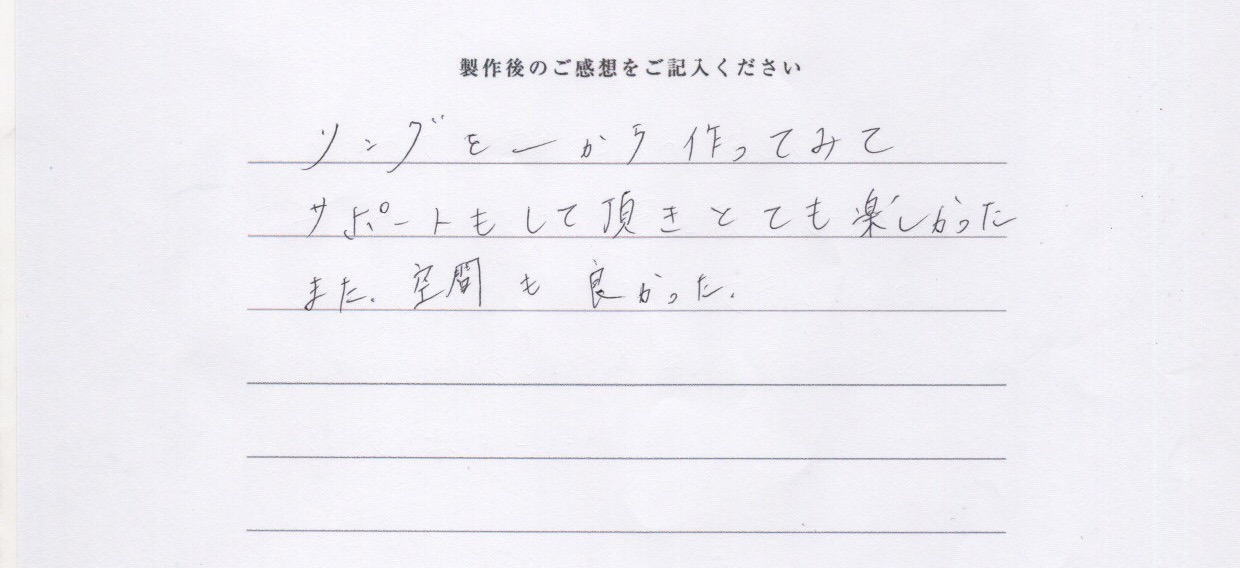 製作後のご感想をご記入ください
リングを一から作ってみて
サポートもして頂きとても楽しかった
また、空間も良かった。